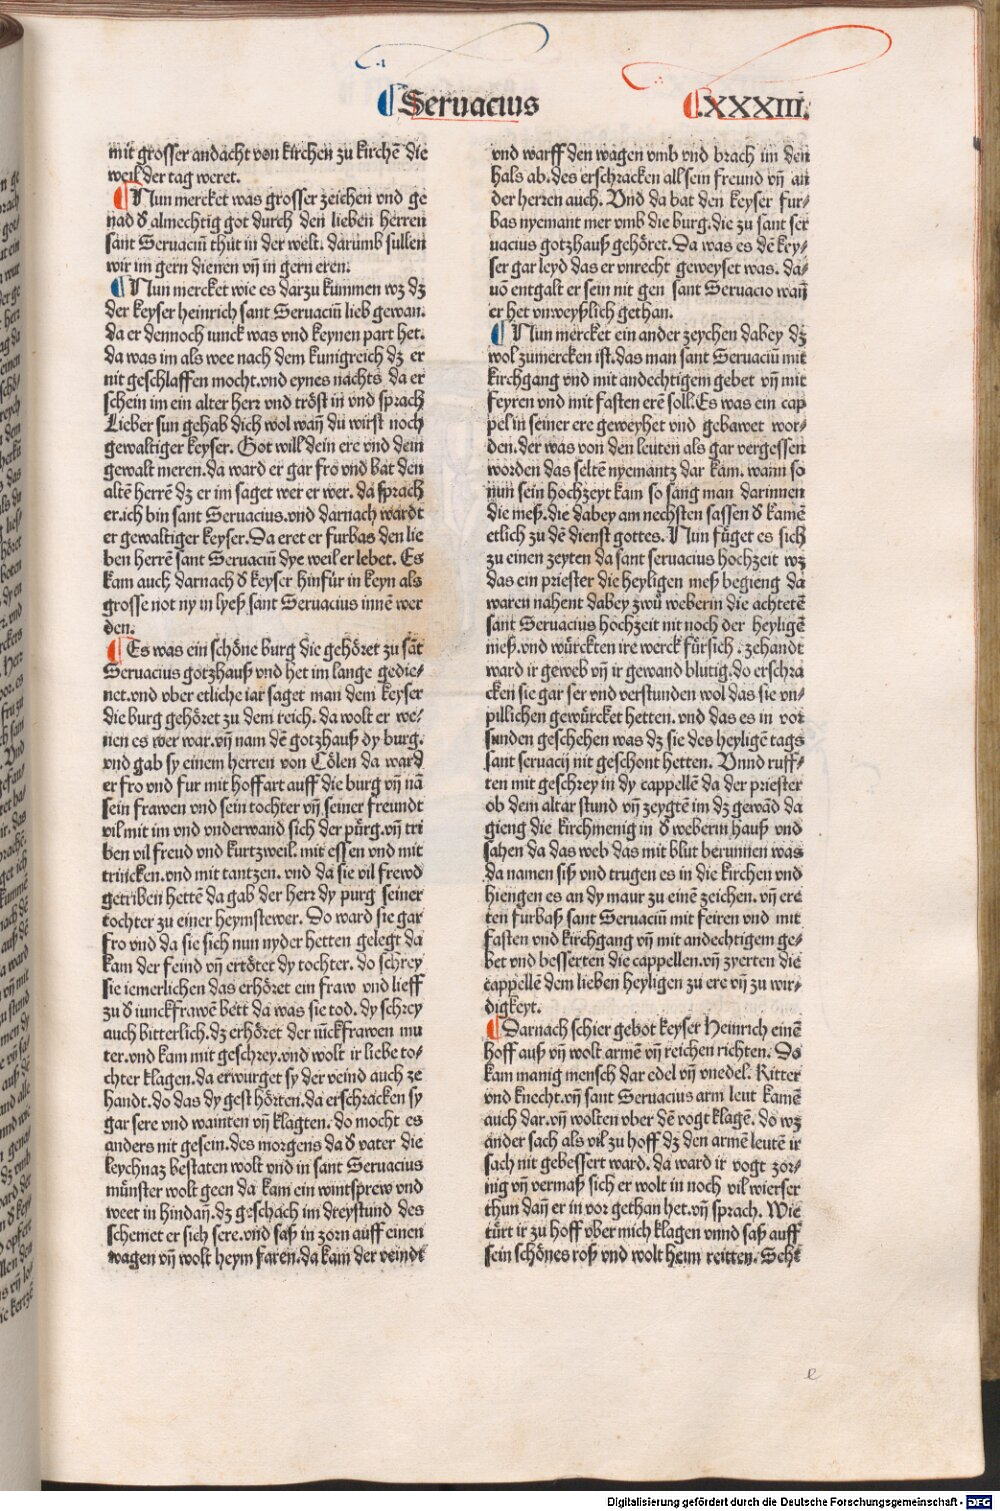 Seruacius
XXXIII.
mit grosser andacht von kirchen zu kirchē die
weil der tag weret.
Nun mercket was grosser zeichen vnd ge
nad d almechtig got durch den lieben herren
sant Seruaciū thut in der welt. darumb sullen
wir im gern dienen vn̄ in gern eren.
Nun mercket wie es darzu kummen wz dz
der keyser heinrich sant Seruaciū lieb gewan.
da er dennoch iunck was vnd keynen part het.
da was im als wee nach dem kunigreich dz er
nit geschlaffen mocht.vnd eynes nachts da er
schein im ein alter herr vnd tröst in vnd sprach
Lieber sun gehab dich wol wan̄ du wirst noch
gewaltiger keyser. Got will dein ere vnd dein
gewalt meren.da ward er gar fro vnd bat den
altē herrē dz er im saget wer er wer. da sprach
er.ich bin sant Seruacius.vnd darnach wardt
er gewaltiger keyser.Da eret er furbas den lie
ben herrē sant Seruaciū dye weil er lebet. Es
kam auch darnach d keyser hinfür in keyn als
grosse not ny in lyeß sant Seruacius innē wer
den.
Es was ein schöne burg die gehöret zu sāt
Seruacius gotzhauß vnd het im lange gedie⸗
net.vnd vber etliche iar saget man dem keyser
die burg gehöret zu dem reich. da wolt er we⸗
nen es wer war.vn̄ nam dē gotzhauß dy burg.
vnd gab sy einem herren von Cölen da ward
er fro vnd fur mit hoffart auff die burg vn̄ nā
sein frawen vnd sein tochter vn̄ seiner freundt
vil mit im vnd vnderwand sich der pürg.vn̄ tri
ben vil freud vnd kurtzweil. mit essen vnd mit
trincken.vnd mit tantzen. vnd da sie vil frewd
getriben hettē da gab der herr dy purg seiner
tochter zu einer heymstewer. Do ward sie gar
fro vnd da sie sich nun nyder hetten gelegt da
kam der feind vn̄ ertötet dy tochter. do schrey
sie iemerlichen das erhöret ein fraw vnd lieff
zu d iunckfrawē bett da was sie tod. dy schrey
auch bitterlich.dz erhöret der iūckfrawen mu
ter.vnd kam mit geschrey.vnd wolt ir liebe to⸗
chter klagen.da erwurget sy der veind auch ze
handt.do das dy gest hörten.da erschracken sy
gar sere vnd wainten vn̄ klagten. do mocht es
anders nit gesein.des morgens da d vater die
leychnaz bestaten wolt vnd in sant Seruacius
münster wolt geen da kam ein wintsprew vnd
weet in hindan̄.dz geschach im dreystund des
schemet er sich sere.vnd saß in zorn auff einen
wagen vn̄ wolt heym faren.da kam der veindt
vnd warff den wagen vmb vnd brach im den
hals ab.des erschracken all sein freund vn̄ an
der herren auch. Vnd da bat den keyser fur⸗
bas nyemant mer vmb die burg.die zu sant ser
uacius gotzhauß gehöret. Da was es dē key⸗
ser gar leyd das er vnrecht geweyset was. da⸗
uō entgalt er sein nit gen sant Seruacio wan̄
er het vnweyßlich gethan.
Nun mercket ein ander zeychen dabey dz
wol zumercken ist.das man sant Seruaciū mit
kirchgang vnd mit andechtigem gebet vn̄ mit
feyren vnd mit fasten erē soll.Es was ein cap
pel in seiner ere geweyhet vnd gebawet wor⸗
den.der was von den leuten als gar vergessen
worden das seltē nyemantz dar kam. wann so
nun sein hochzeyt kam so sang man darinnen
die meß.die dabey am nechsten sassen d kamē
etlich zu dē dienst gottes. Nun füget es sich
zu einen zeyten da sant seruacius hochzeit wz
das ein priester die heyligen meß begieng da
waren nahent dabey zwu weberin die achtetē
sant Seruacius hochzeit nit noch der heyligē
meß.vnd würckten ire werck fürsich . zehandt
ward ir geweb vn̄ ir gewand blutig.do erschra
cken sie gar ser vnd verstunden wol das sie vn⸗
pillichen gewürcket hetten. vnd das es in vor
sunden geschehen was dz sie des heyligē tags
sant seruacij nit geschont hetten. Vnnd ruff⸗
ten mit geschrey in dy cappellē da der priester
ob dem altar stund vn̄ zeygtē im dz gewād da
gieng die kirchmenig in d weberin hauß vnd
sahen da das web das mit blut berunnen was
da namen siß vnd trugen es in die kirchen vnd
hiengen es an dy maur zu einē zeichen. vn̄ ere
ten furbaß sant Seruaciū mit feiren vnd mit
fasten vnd kirchgang vn̄ mit andechtigem ge⸗
bet vnd besserten die cappellen.vn̄ zyerten die
cappellē dem lieben heyligen zu ere vn̄ zu wir⸗
digkeyt.
Darnach schier gebot keyser Heinrich einē
hoff auß vn̄ wolt armē vn̄ reichen richten. Do
kam manig mensch dar edel vn̄ vnedel. Ritter
vnd knecht.vn̄ sant Seruacius arm leut kamē
auch dar.vn̄ wolten vber dē vogt klagē. do wz
ander sach als vil zu hoff dz den armē leutē ir
sach nit gebessert ward. da ward ir vogt zor⸗
nig vn̄ vermaß sich er wolt in noch vil wierser
thun dan̄ er in vor gethan het.vn̄ sprach. Wie
türt ir zu hoff vber mich klagen vnnd saß auff
sein schönes roß vnd wolt heim reitten. Seht
e
Digitalisierung gefördert durch die Deutsche Forschungsgemeinschaft - DFG